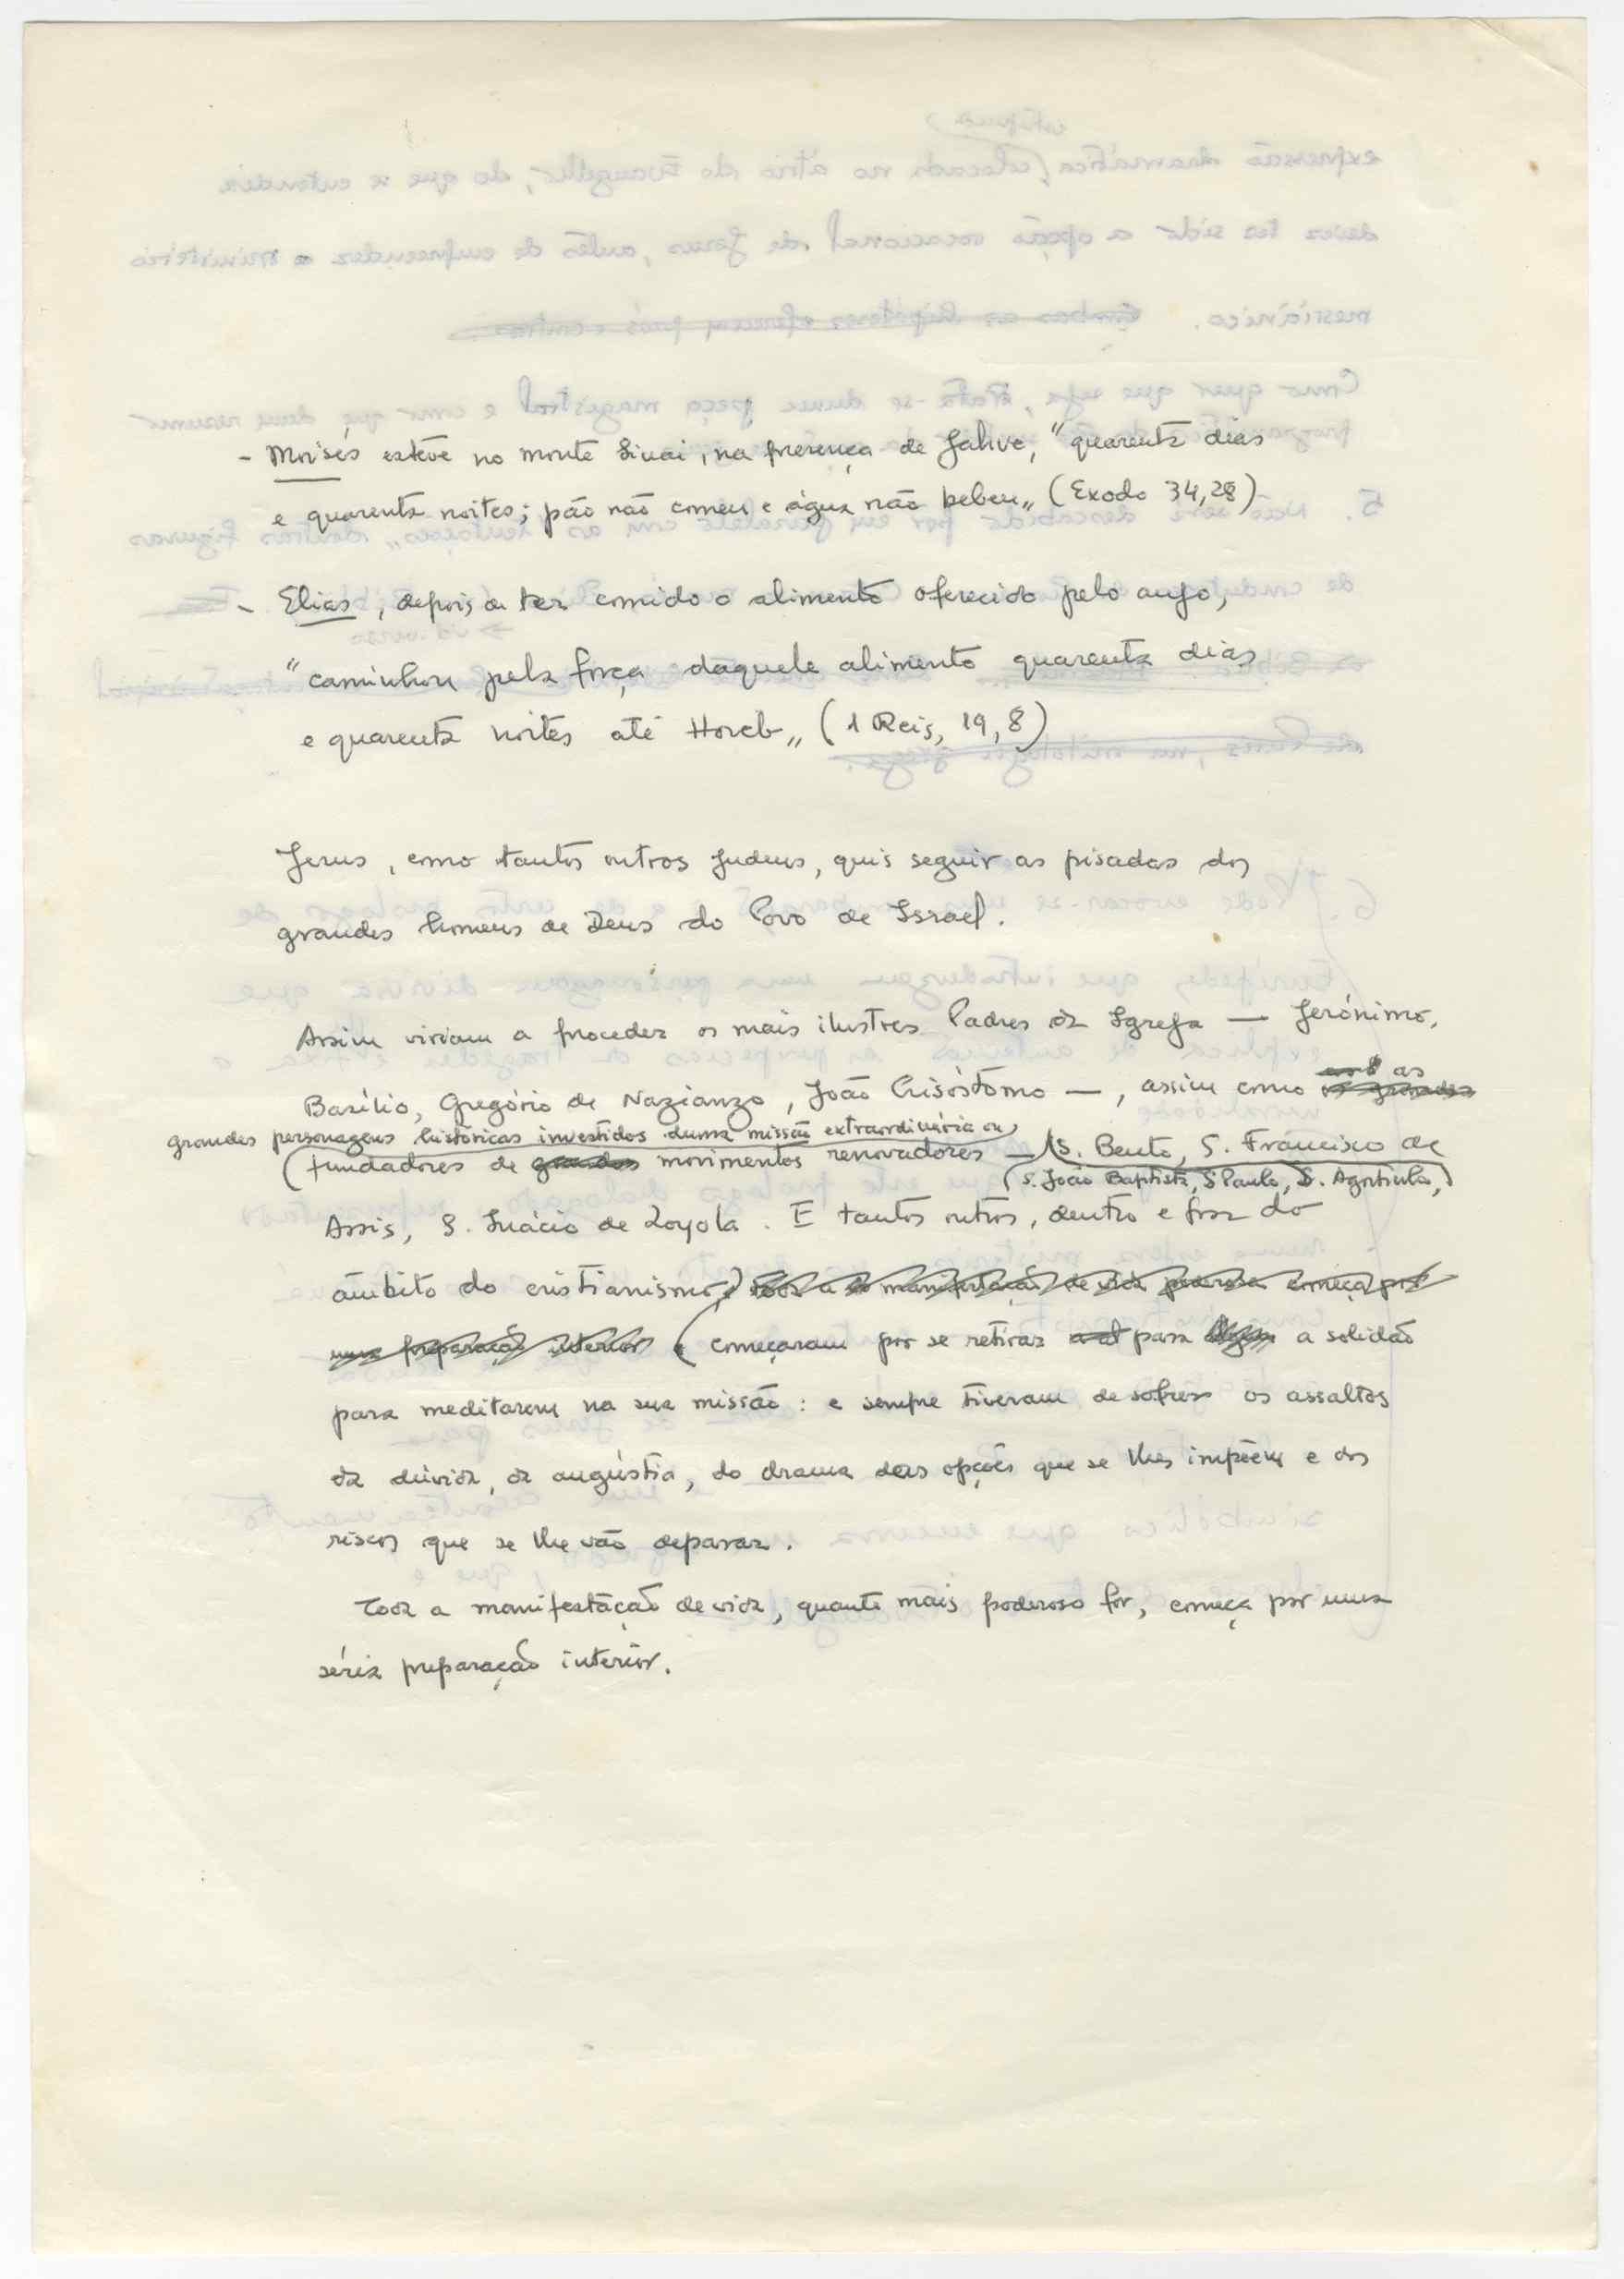 - Moisés esteve no monte Sinai, na presença de Jahve, "quarenta dias
e quarenta noites; pão não comeu e água não bebeu„ (Exodo 34,28)
- Elias, depois de ter comido o alimento oferecido pelo anjo,
"caminhou pela força daquele alimento quarenta dias
e quarenta noites até Horeb„ (1 Reis, 19,8)
Jesus, como tantos outros judeus, quis seguir as pisadas dos
grandes homens de Deus do Povo de Israel.
Assim viriam a proceder os mais ilustres Padres da Igreja — Jerónimo,
Basílio, Gregório de Nazianzo, João Crisóstomo —, assim como as
grandes personagens históricas investidos duma missão extraordinária ou
fundadores de grandes movimentos renovadores — (S. Bento, S. Francisco de
(S. João Baptista, S. Paulo, S. Agostinho,)
Assis, S. Inácio de Loyola. E tantos outros, dentro e fora do
âmbito do cristianismo, toda a manifestação de vida poderosa começa por
uma preparação interior (começaram por se retirar para a solidão
para meditarem na sua missão: e sempre tiveram de sofrer os assaltos
da dúvida, da angústia, do drama das opções que se lhes impõem e dos
riscos que se lhe vão deparar.
Toda a manifestação de vida, quanto mais poderosa for, começa por uma
séria preparação interior.